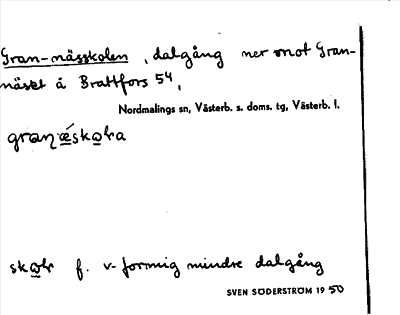 Gran-nässkolen, dalgång ner mot Gran-
näset å Brattfors 54,
Nordmalings sn, Västerb. s. doms. tg, Västerb. l.
f. v-formig mindre dalgång
SVEN SÖDERSTRÖM 1950